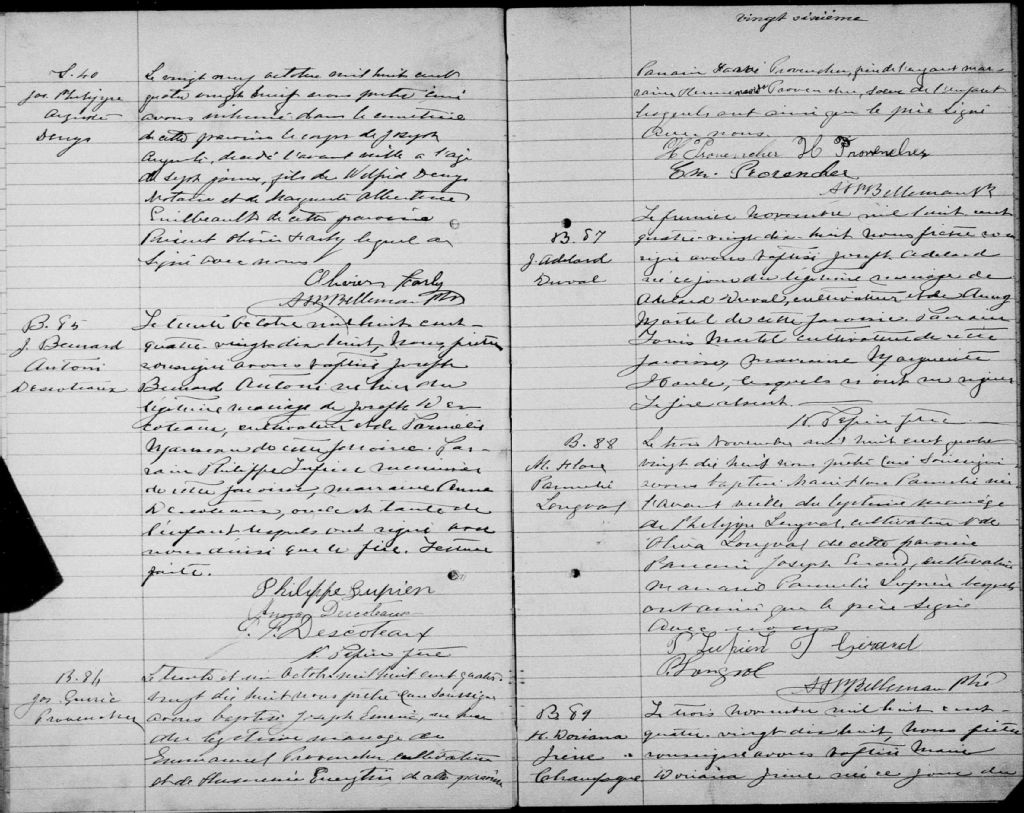 S. 40
Jos. Philippe
Auguste
Denys
Le vingt neuf octobre mil huit cent
quatre vingt huit nous prêtre curé
avons inhumé dans le cimetière
de cette paroisse le corps de Joseph
Auguste, décédé l'avant veille a l'age
de sept jours, fils de Wilfrid Denys
Notaire et de Marguerite Albertine
Guilbeault de cette paroisse
Présent Olivier Harly lequel a
signé avec nous
Olivier Harly
B. 85
J. Bernard
Antoni
Descoteaux
Le trente Octobre mil huit cent
quatre-vingt dix huit, Nous prêtre
soussigné avons baptisé Joseph
Bernard Antoni né hier du
légitime mariage de Joseph Des-
coteaux, cultivateur et de Parmelie
de cette paroisse. Par-
rain Philippe Lupien menuisier
de cette paroisse, marraine Anna
Descoteaux, oncle et tante de
l'enfant lesquels ont signé avec
nous ainsi que le père. Lecture
faite.
Philippe Lupien
Anna Descoteaux
Descoteaux
N. Pepin ptre
B. 86
Jos.
Provencher
Le trente et un Octobre mil huit cent quatre
vingt dix huit nous prêtre curé soussigné
avons baptisé Joseph né hier
du légitime mariage de
Emmanuel Provencher cultivateur
et de de cette paroisse
vingt sixième
Parrain Provencher, frère de l'enfant mar-
raine Provencher, soeur de l'enfant
lesquels ont ainsi que le père signé
avec nous.
H Provencher H Provencher
Em. Provencher
B. 87
J. Adelard
Duval
Le premier Novembre mil huit cent
quatre-vingt dix huit nous prêtre sous-
signé avons baptisé Joseph Adelard
né ce jour du légitime mariage de
Adelard Duval, cultivateur et de
Martel de cette paroisse. Parrain
Martel cultivateur de cette
paroisse, marraine Marguerite
Houle, lesquels n'ont su signer
Le père absent.
N. Pepin ptre
B. 88
M. Flore
Parmelie
Longval
Le trois Novembre mil huit cent quatre
vingt dix huit nous prêtre curé soussigné
avons baptisé Marie Flore Parmelie née
l'avant veille du légitime mariage
de Philippe Longval, cultivateur & de
Oliva Longval de cette paroisse
Parrain Joseph Girard, cultivateur
Marraine Parmelie Lupien lesquels
ont ainsi que le père signé
avec nous
P Lupien J Girard
P. Longval
B 89
M. Doriana
Irène
Champagne
Le trois novembre mil huit cent
quatre-vingt dix huit, Nous prêtre
soussigné avons baptisé Marie
Doriana Irène née ce jour du